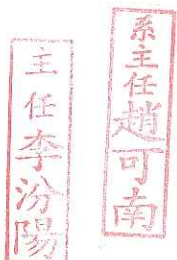 系主任趙可南
主任李汾陽